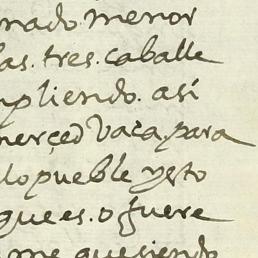 nado. menor
las. tres. caballe
npliendo. así
merçed Vaca. para
llo pueble ysto
que es. o fuere
me queriendo